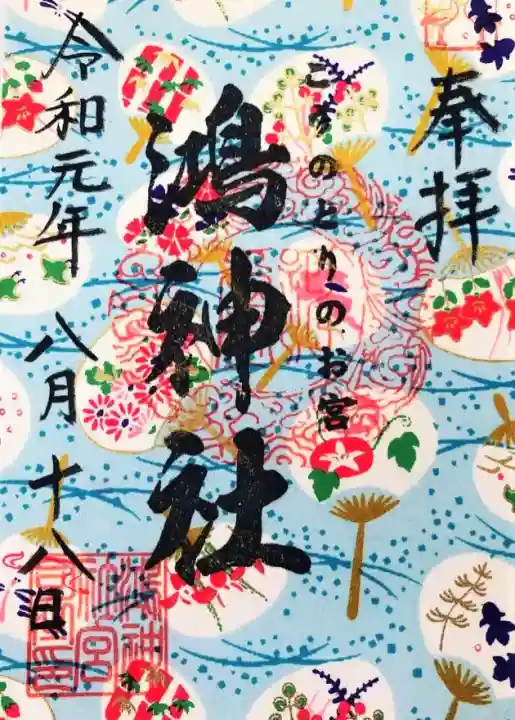 奉拝
こうのとりのお宮
鴻神社
令和元年 八月 十八日